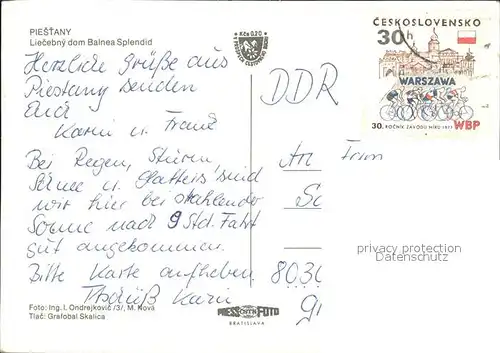 PIEŠŤANY
Liečebný dom Balnea Splendid
Kčs 0,20
ČESKOSLOVENSKO
30h
WARSZAWA
30. ROČNÍK ZÁVODU MÍRU 1977 WBP
Herzliche Grüße aus
Piestany senden
Euch
Karin u. Frank
DDR
Bei Regen, Sturm,
Schnee u. Glatteis sind
wir hier bei strahlender
Sonne nach 9 Std. Fahrt
gut angekommen.
Bitte Karte aufheben
Tschüß Karin
An Frau
80.30
privacy protection
Datenschutz
Foto: Ing. I. Ondrejkovič /3/, M. Nová
Tlač: Grafobal Skalica
PRESSFOTO
BRATISLAVA